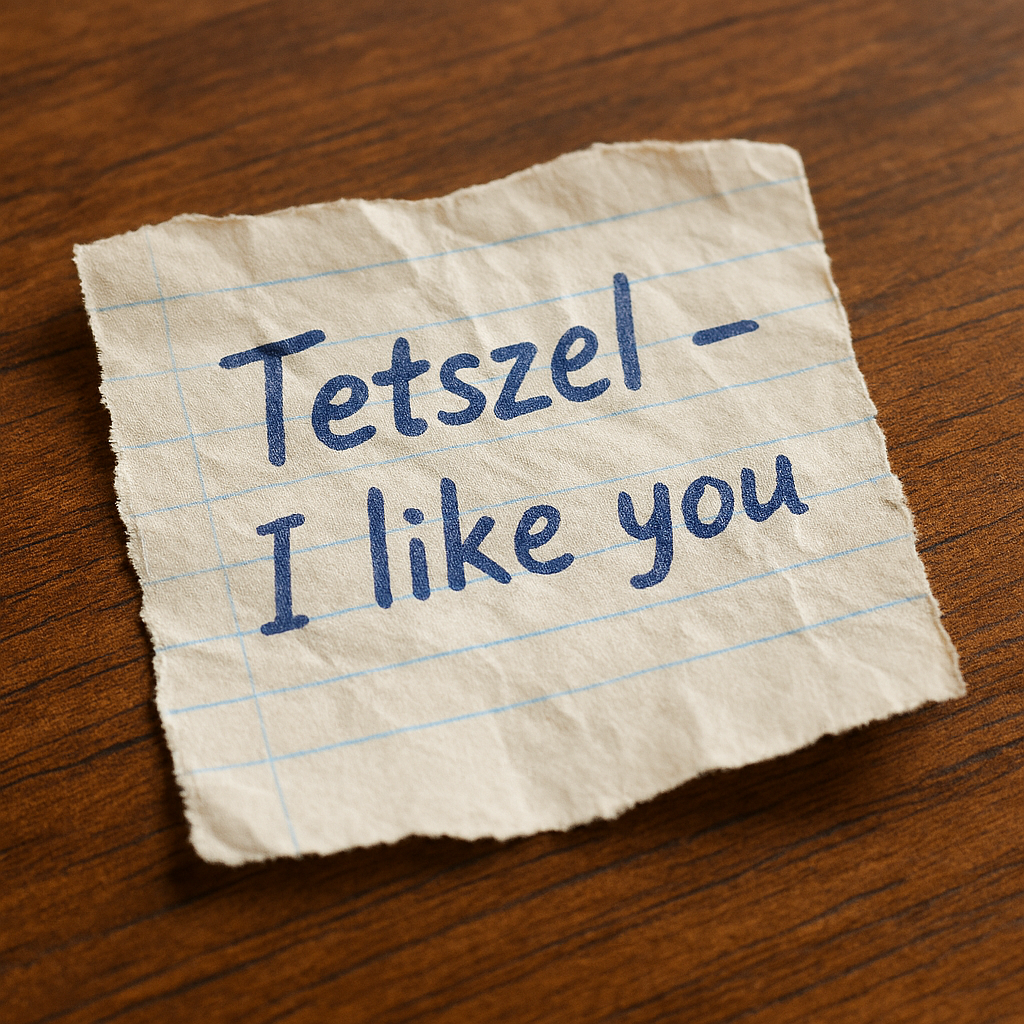 Tetszel –
I like you